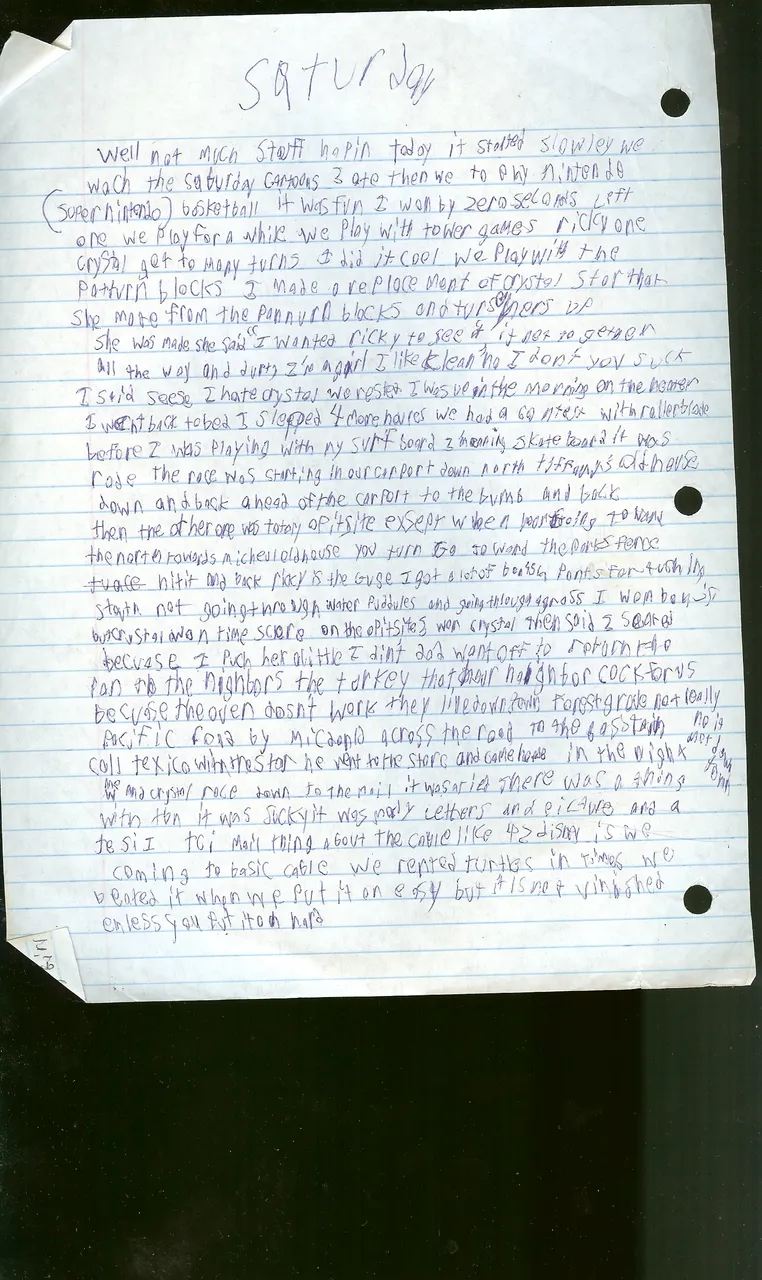 Saturday
Well not much stuff hapin today it started slowley we
wach the saturday cartoons 3 ate then we to play nintendo
(super nintendo) basketball it was fun I won by zero selands left
one we play for a while we play with tower games ricky one
crystal get to many turns I did it cool we play with the
patturn blocks I made a replacement of crystal star that
she made from the blocks and turs hers up
she was made she said "I wanted ricky to see it" it not to gether
all the way and durty I'm a girl I like klean no I dont you suck
I said seese I hate crystal we rested I was up in the morning on the heater
I went back to bed I slepped 4 more houres we had a contest with rollerblade
before I was playing with my surf board I meaning skate board it was
rode the race was starting in our carport down north tiffany's old house
down and back ahead of the carport to the bumb and back
then the other one was totaly opitsite exsept when your going to ward
the north towards micheul old house you turn go to ward the parks fence
hit it and back ricky is the guge I got a lot of bonish points for rushing
start not going through water puddules and going through grass I won
but crystal won time score on the opitsite I won crystal then said I seared
becuase I push her a little I dint dad want off to return the
pan to the neighbors the turkey that our neighbor cock for us
becuse the oven dosnt work they live down town forest grove not really
pacific ford by micdonald across the road to the gasstain
call texico with the star he went to the store and came home in the night
me and crystal race down to the mail it was a tie there was a thing
with ten it was sucky it was mostly letters and picture and a
tci mail thing about the cable like 42 disny is we
coming to basic cable we rented turtles in times we
beated it when we put it on easy but it is not vinished
enless you put it on hard